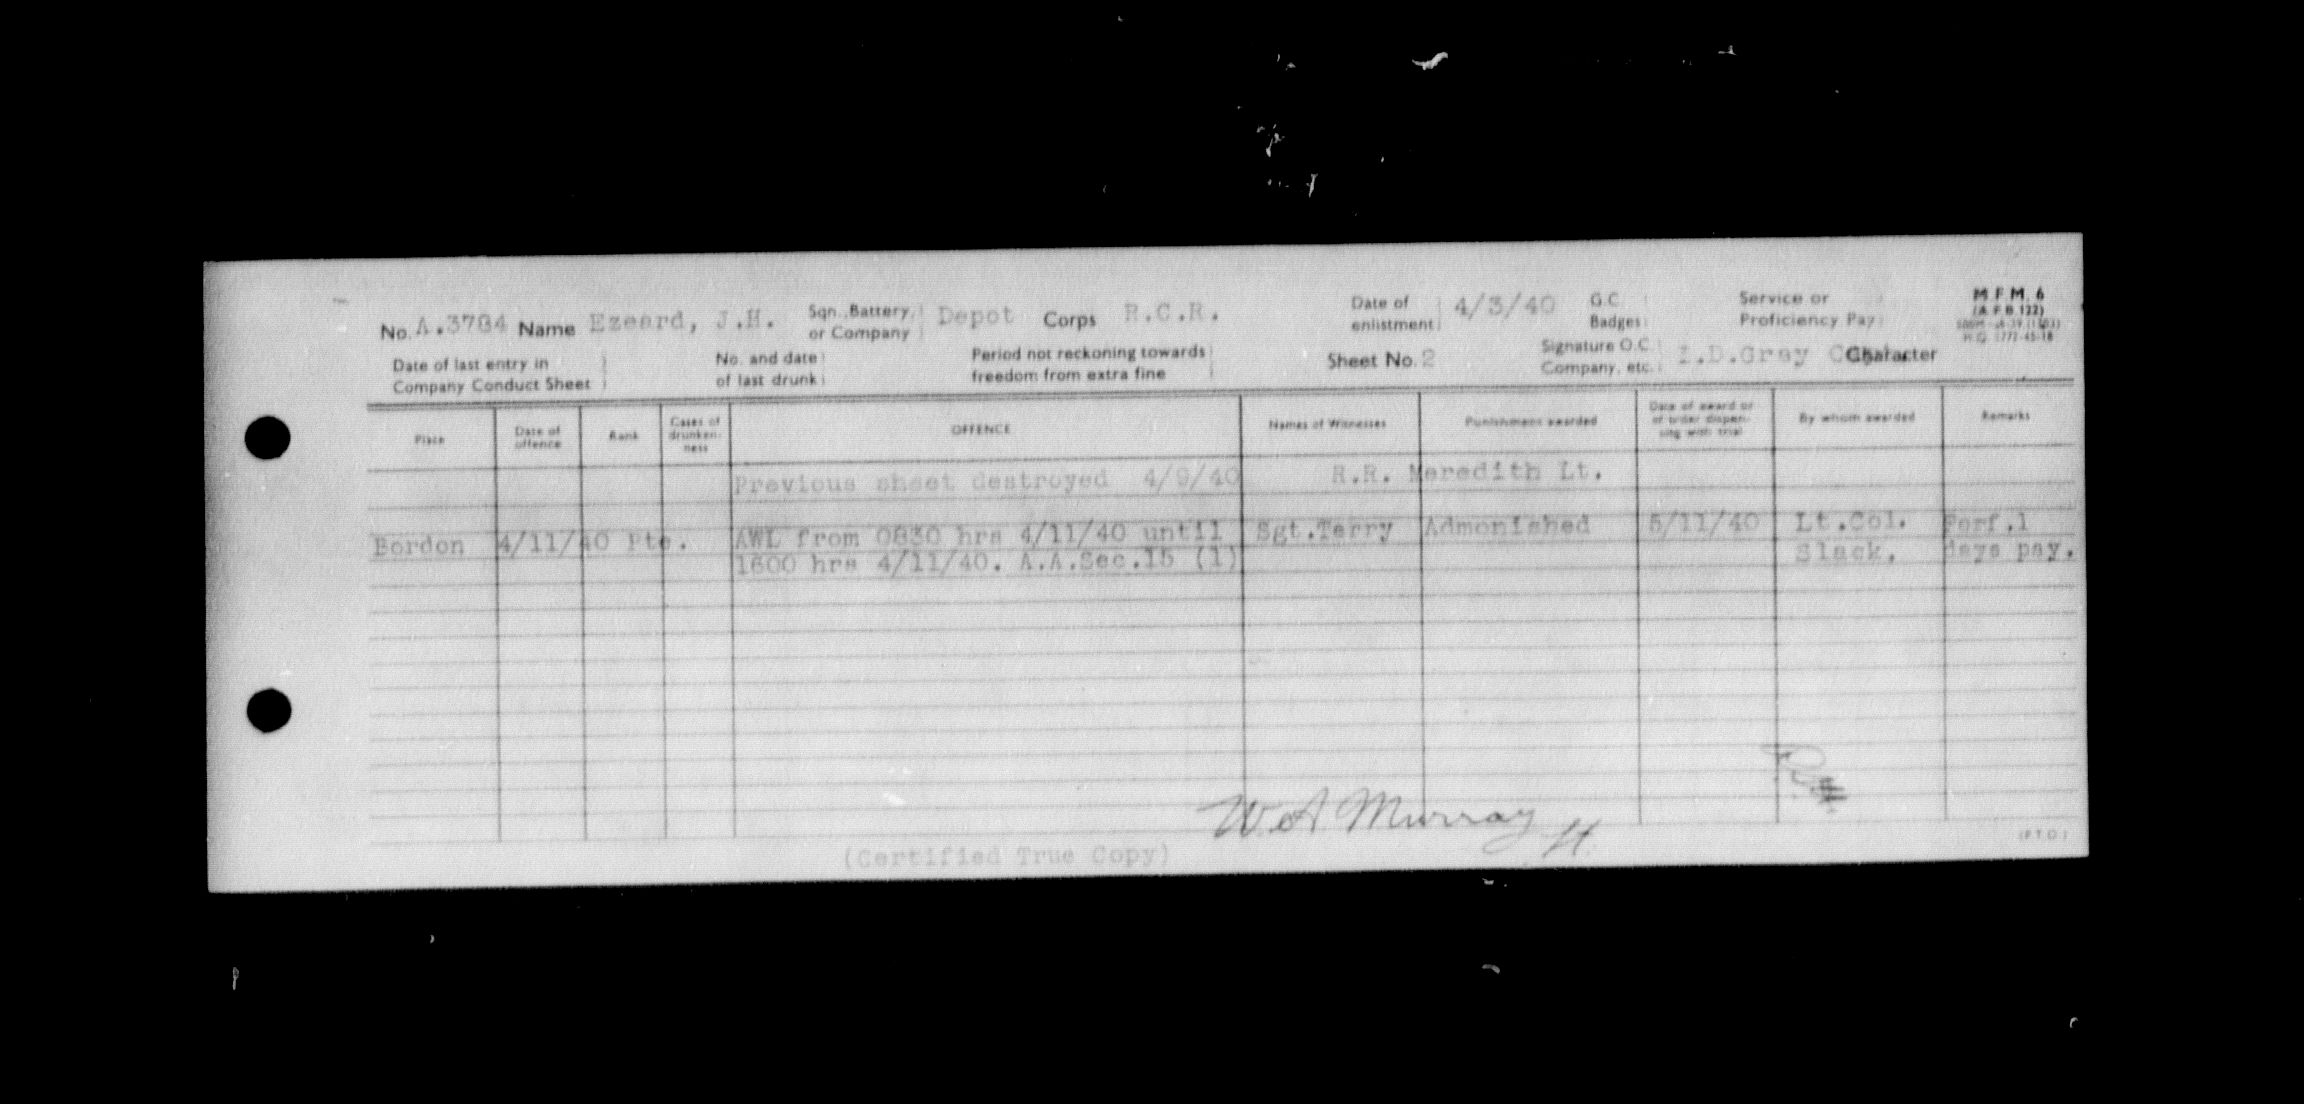 No. A.3784 Name Ezeard, J.H. Sqn., Battery, or Company Depot Corps R.C.R. Date of enlistment 4/3/40 G.C. Badges Service or Proficiency Pay M.F.M. 6
(A.F.B. 122)
Date of last entry in Company Conduct Sheet No. and date of last drunk Period not reckoning towards freedom from extra fine Sheet No. 2 Signature O.C. Company, etc. I.D.Gray Character
Place Date of offence Rank Cases of drunkenness OFFENCE Names of Witnesses Punishment awarded Date of award or of order dispensing with trial By whom awarded Remarks
Previous sheet destroyed 4/9/40 R.R. Meredith Lt.
Bordon 4/11/40 Pte. AWL from 0830 hrs 4/11/40 until Sgt.Terry Admonished 5/11/40 Lt.Col. Forf.1
1600 hrs 4/11/40. A.A.Sec.15 (1) Slack. days pay.
W.A Murray Lt.
(Certified True Copy)
(P.T.O.)